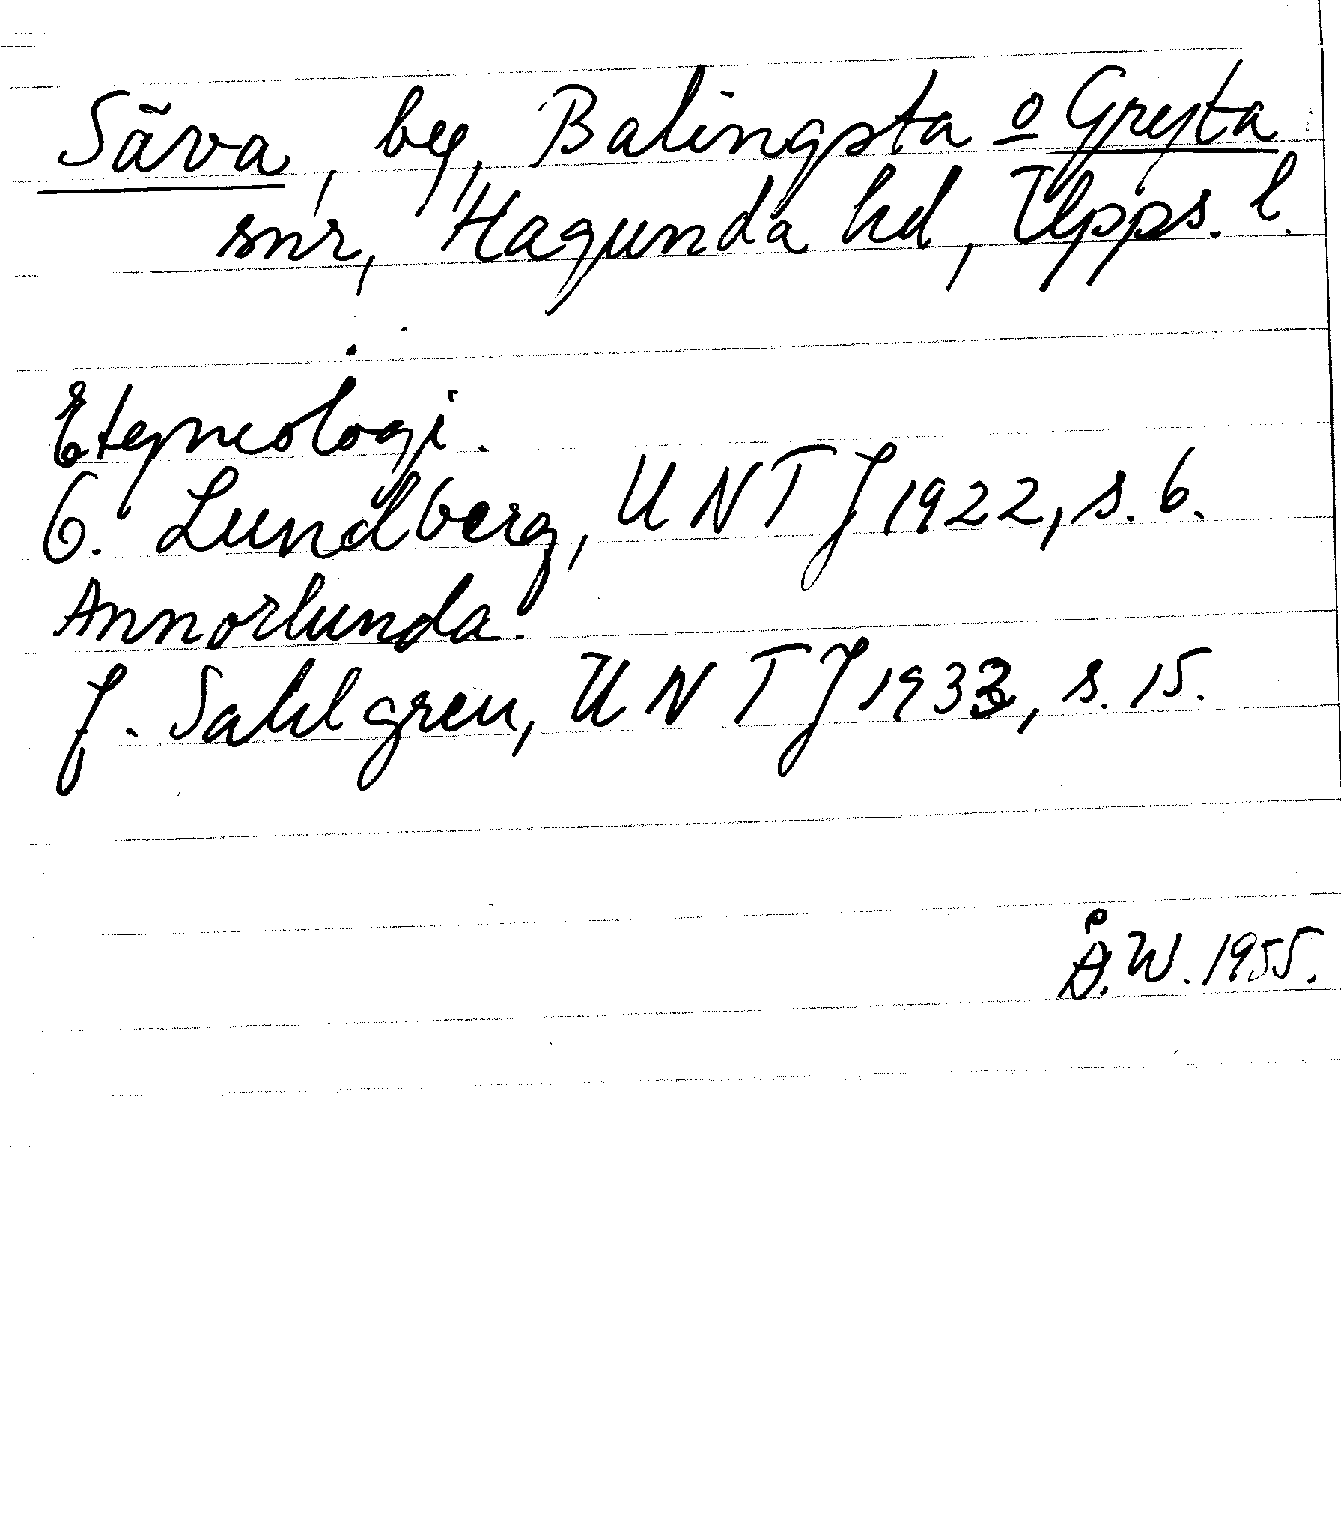 Säva, by, Balingsta o Gryta
snr, Hagunda hd, Upps. l.
Etymologi.
O. Lundberg, UNTJ 1922, s. 6.
Annorlunda.
J. Sahlgren, UNTJ 1933, s. 15.
Å.W. 1955.